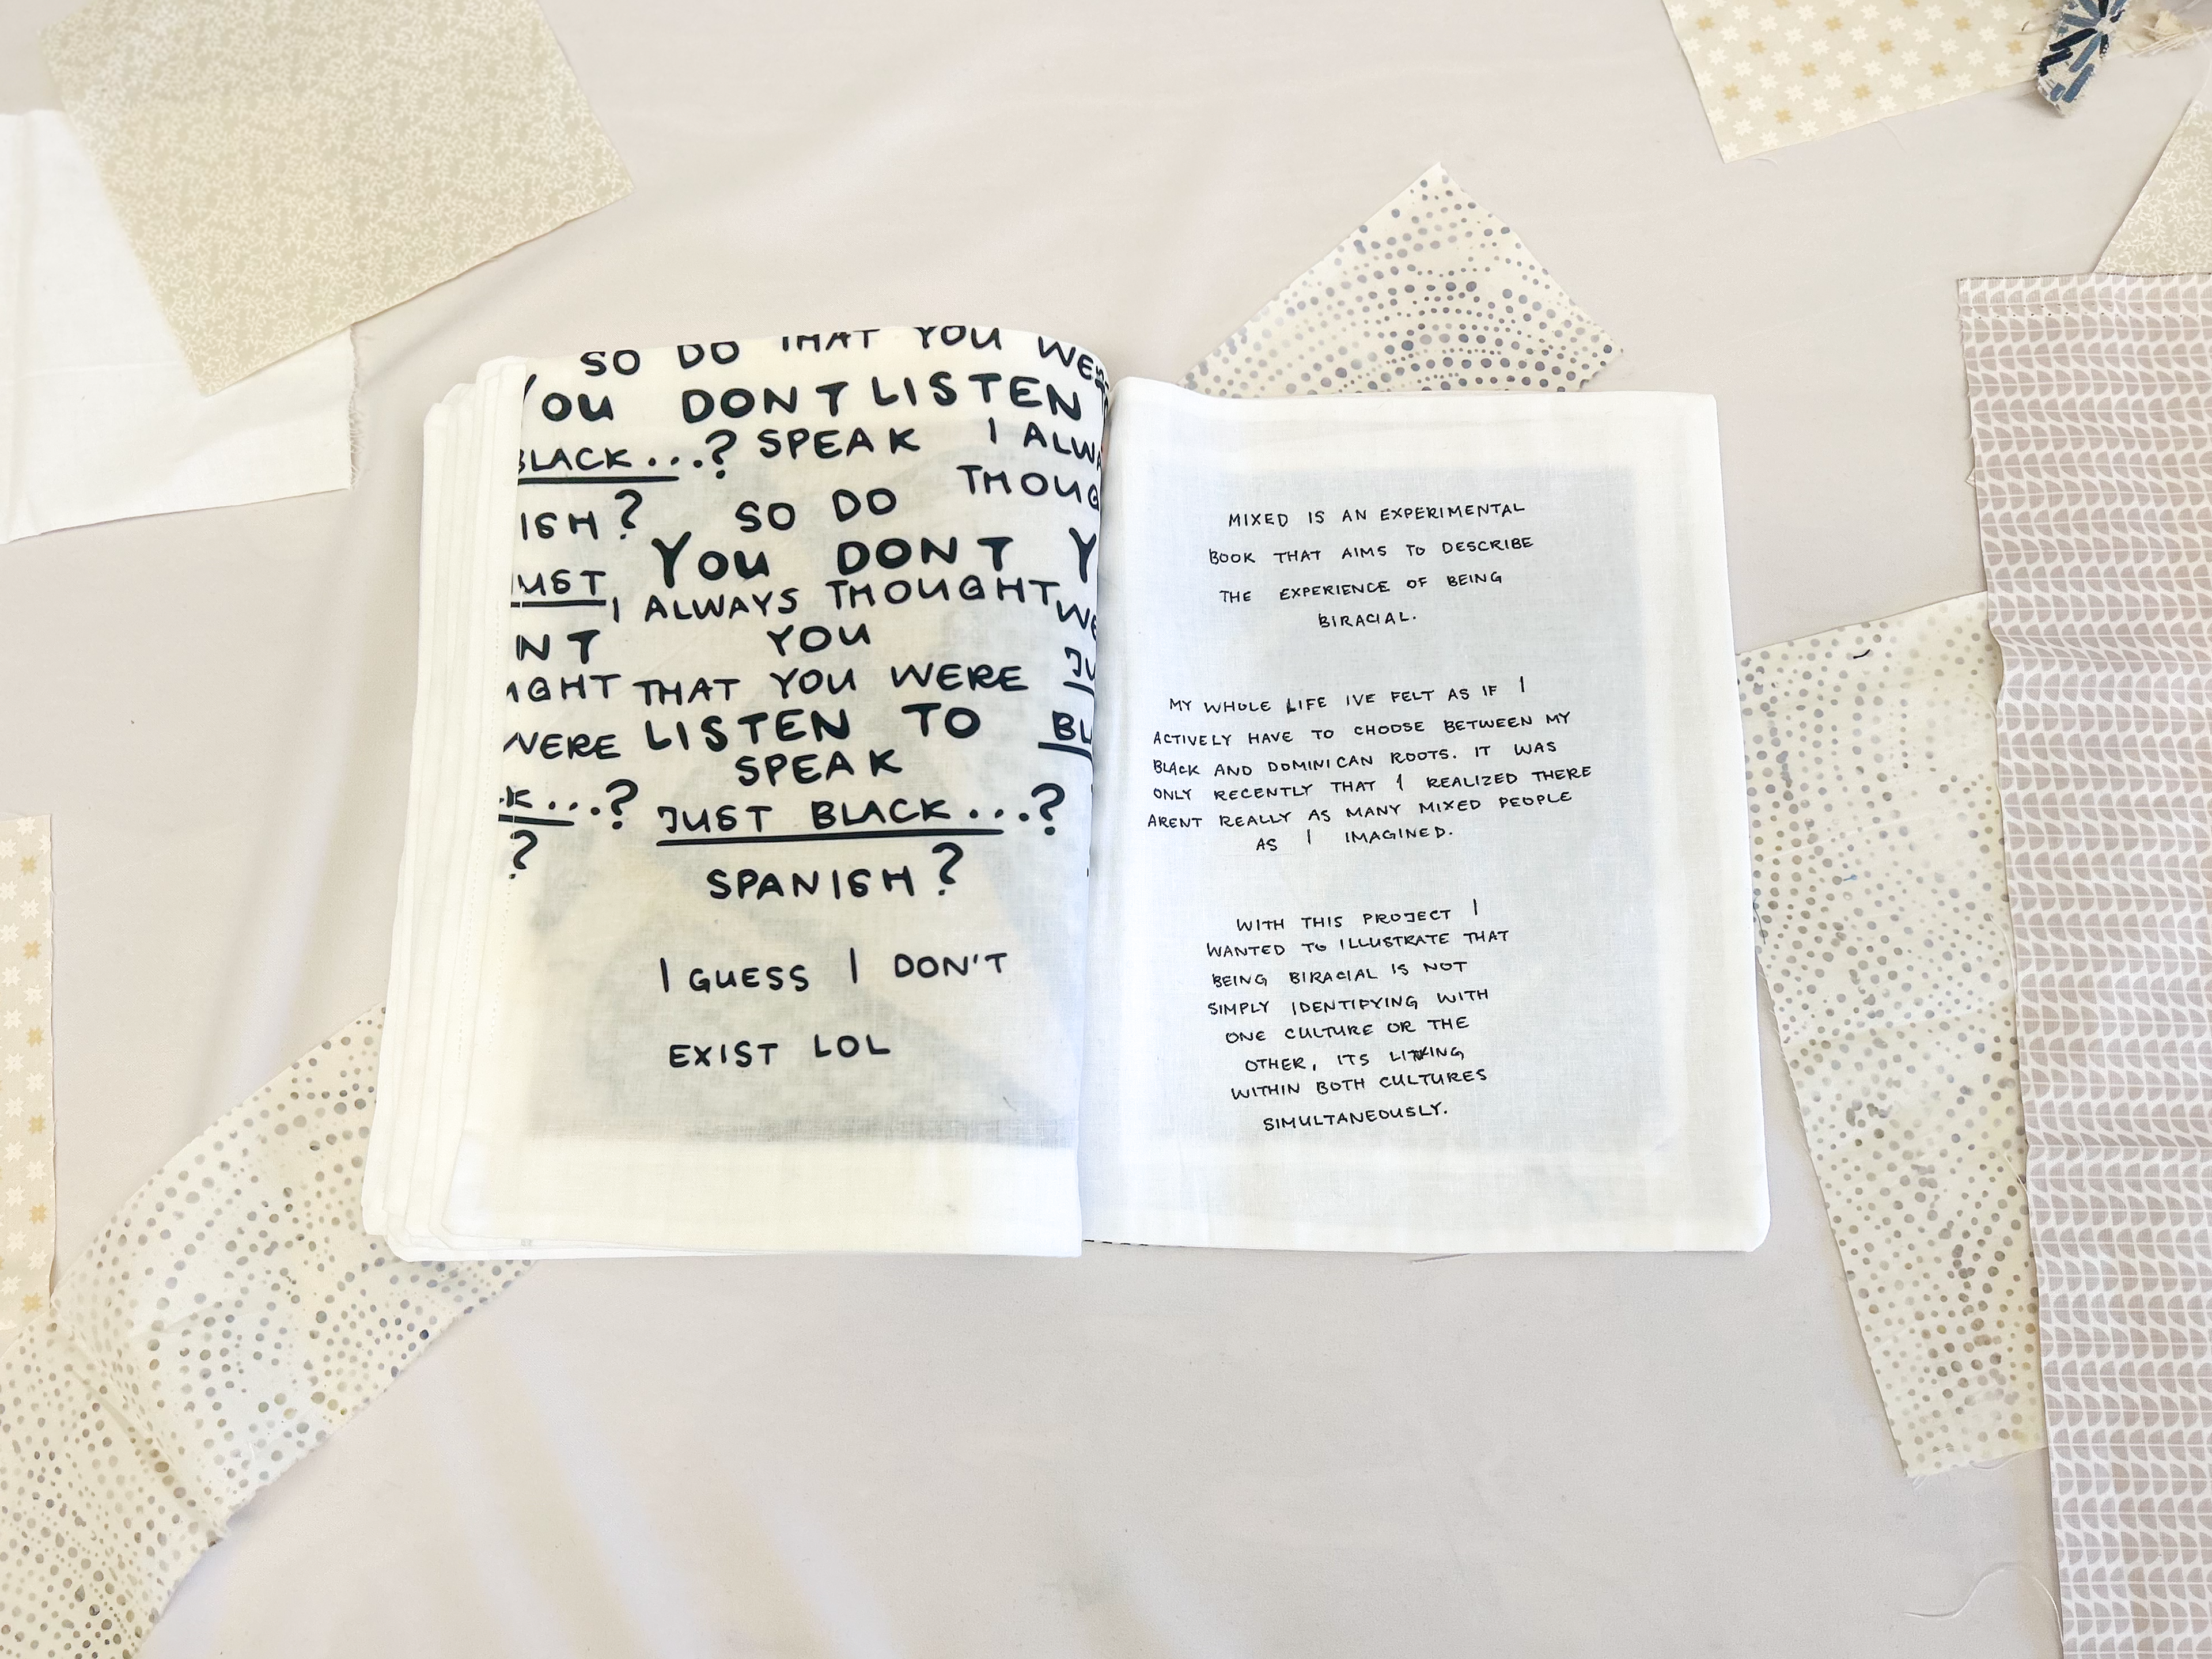 SO DO THAT YOU WERE
YOU DONT LISTEN
BLACK...? SPEAK I ALWA
THOUG
ISH? SO DO
YOU DONT Y
JUST I ALWAYS THOUGHT WE
NT YOU
UGHT THAT YOU WERE JU
WERE LISTEN TO BL
SPEAK
CK...? JUST BLACK...?
? SPANISH?
I GUESS I DON'T
EXIST LOL
MIXED IS AN EXPERIMENTAL
BOOK THAT AIMS TO DESCRIBE
THE EXPERIENCE OF BEING
BIRACIAL.
MY WHOLE LIFE IVE FELT AS IF I
ACTIVELY HAVE TO CHOOSE BETWEEN MY
BLACK AND DOMINICAN ROOTS. IT WAS
ONLY RECENTLY THAT I REALIZED THERE
ARENT REALLY AS MANY MIXED PEOPLE
AS I IMAGINED.
WITH THIS PROJECT I
WANTED TO ILLUSTRATE THAT
BEING BIRACIAL IS NOT
SIMPLY IDENTIFYING WITH
ONE CULTURE OR THE
OTHER, ITS
WITHIN BOTH CULTURES
SIMULTANEOUSLY.